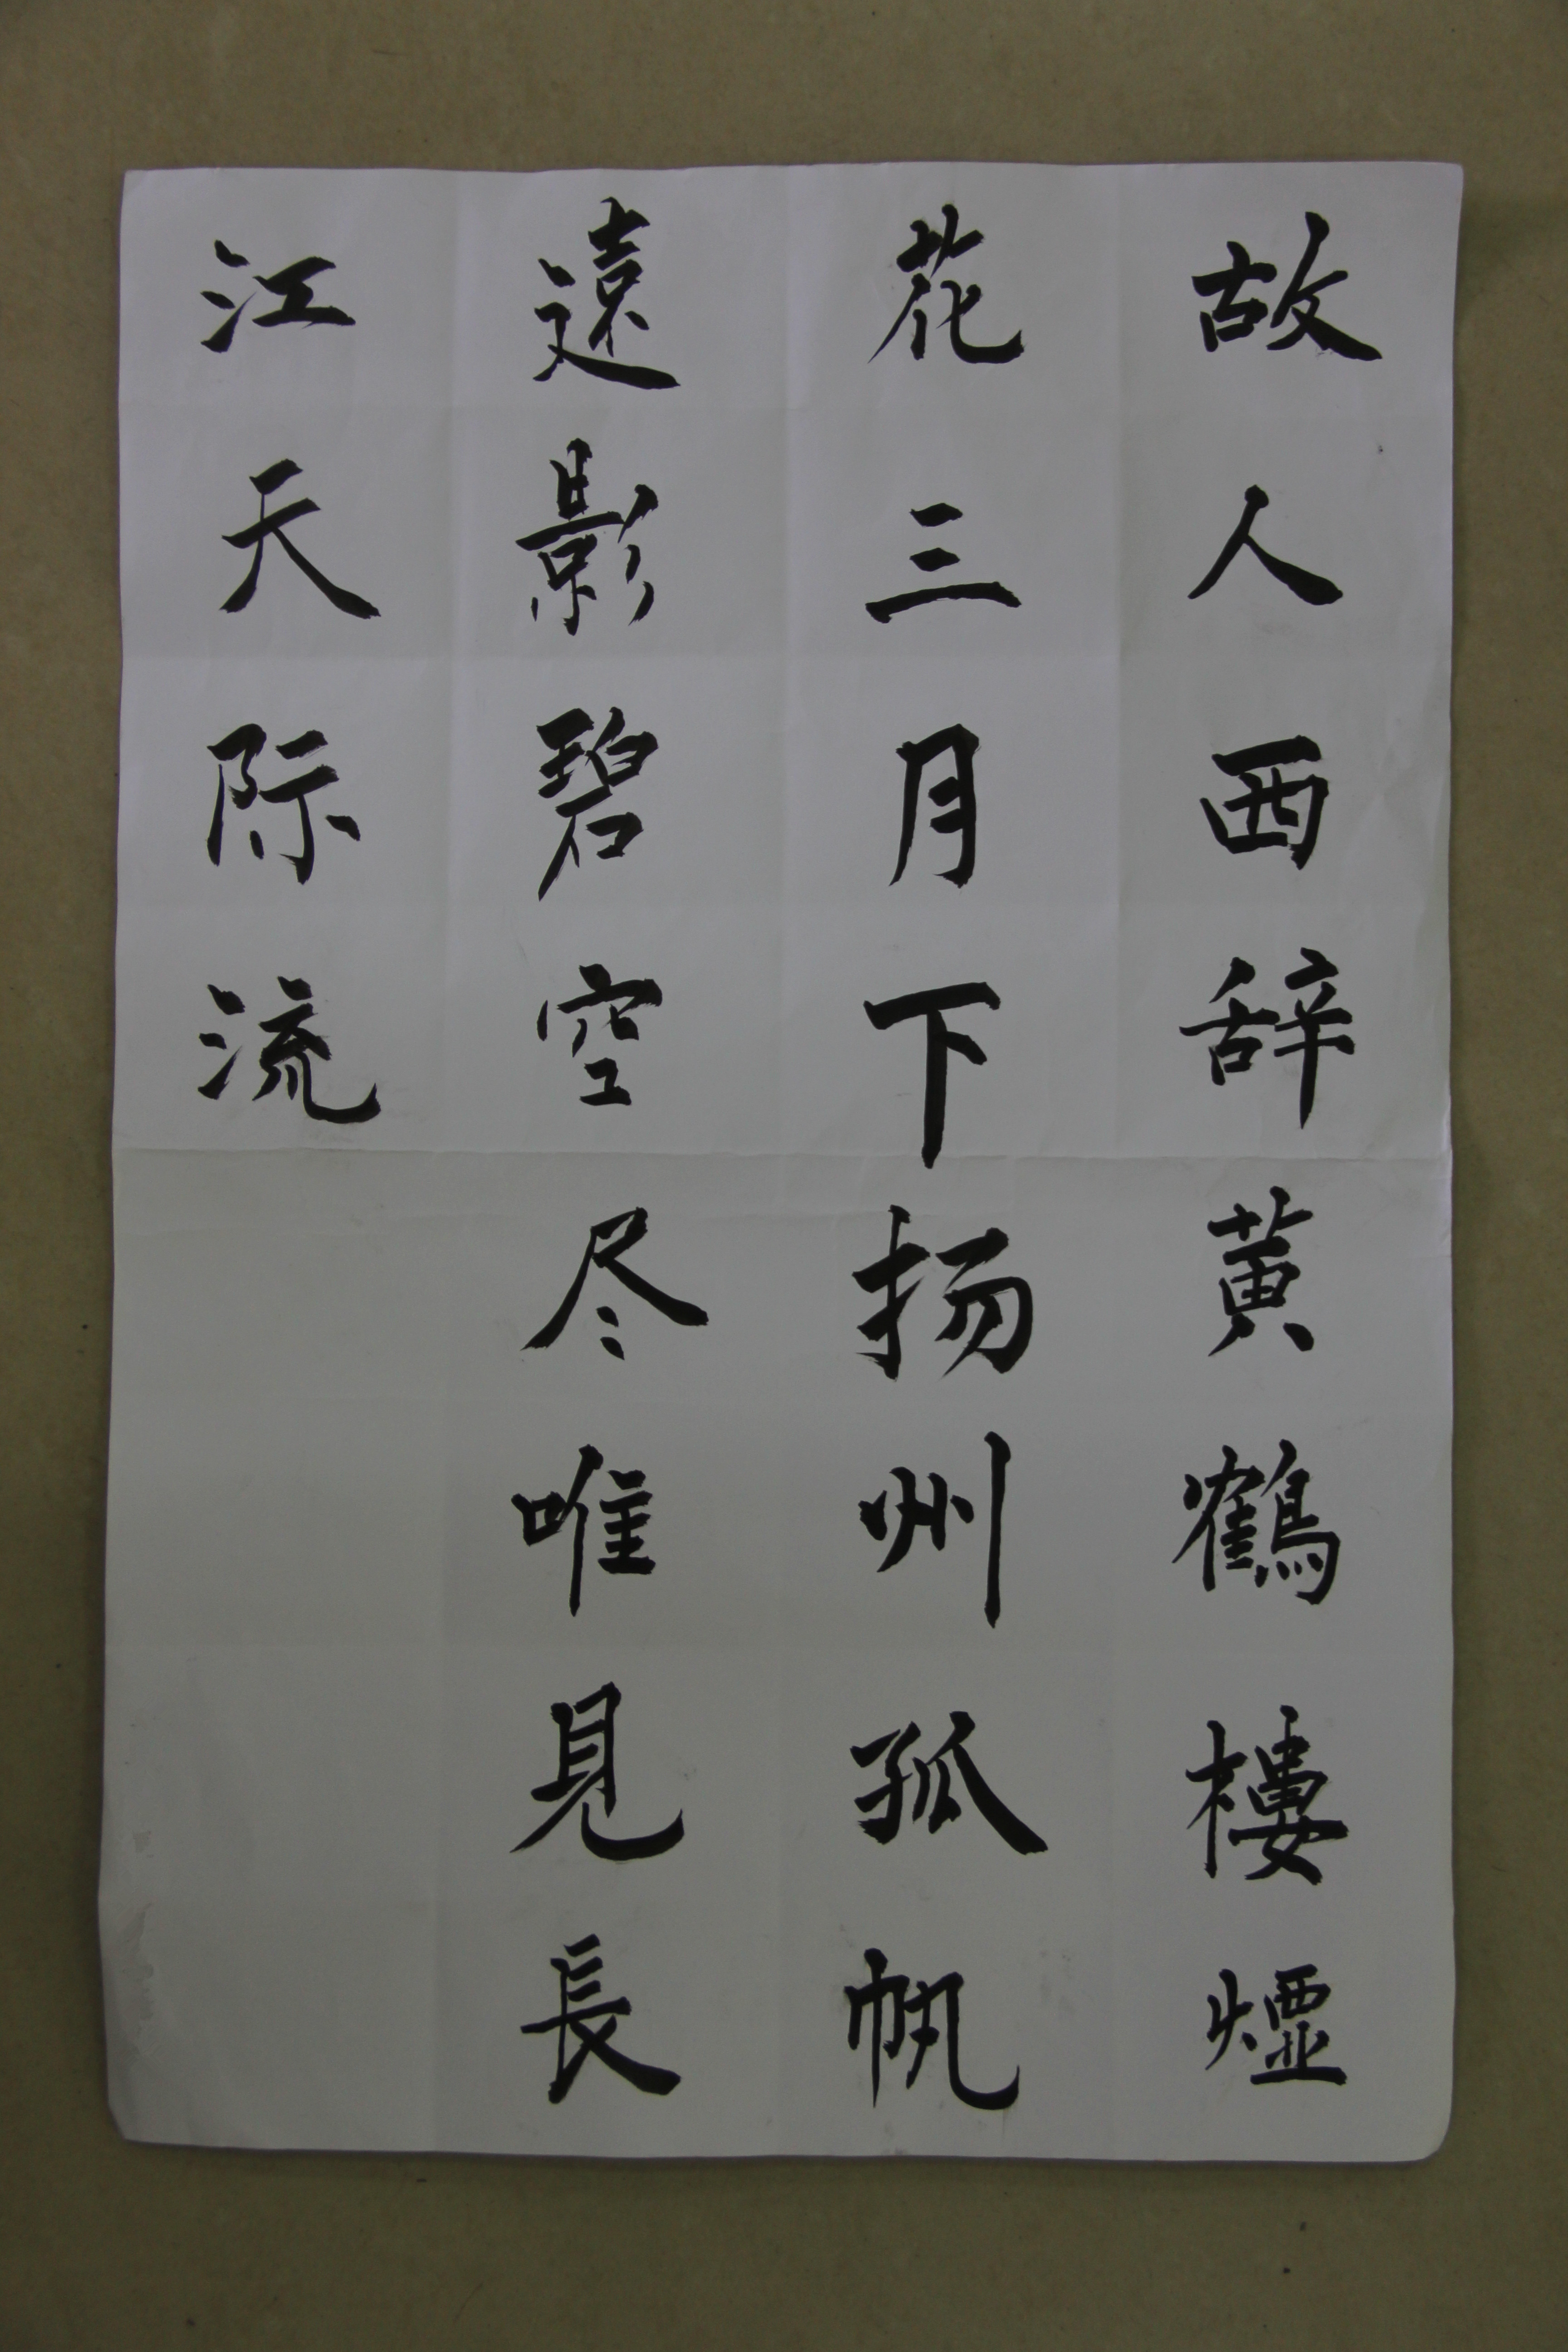 故人西辞黄鶴樓煙
花三月下扬州孤帆
遠影碧空尽唯見長
江天际流